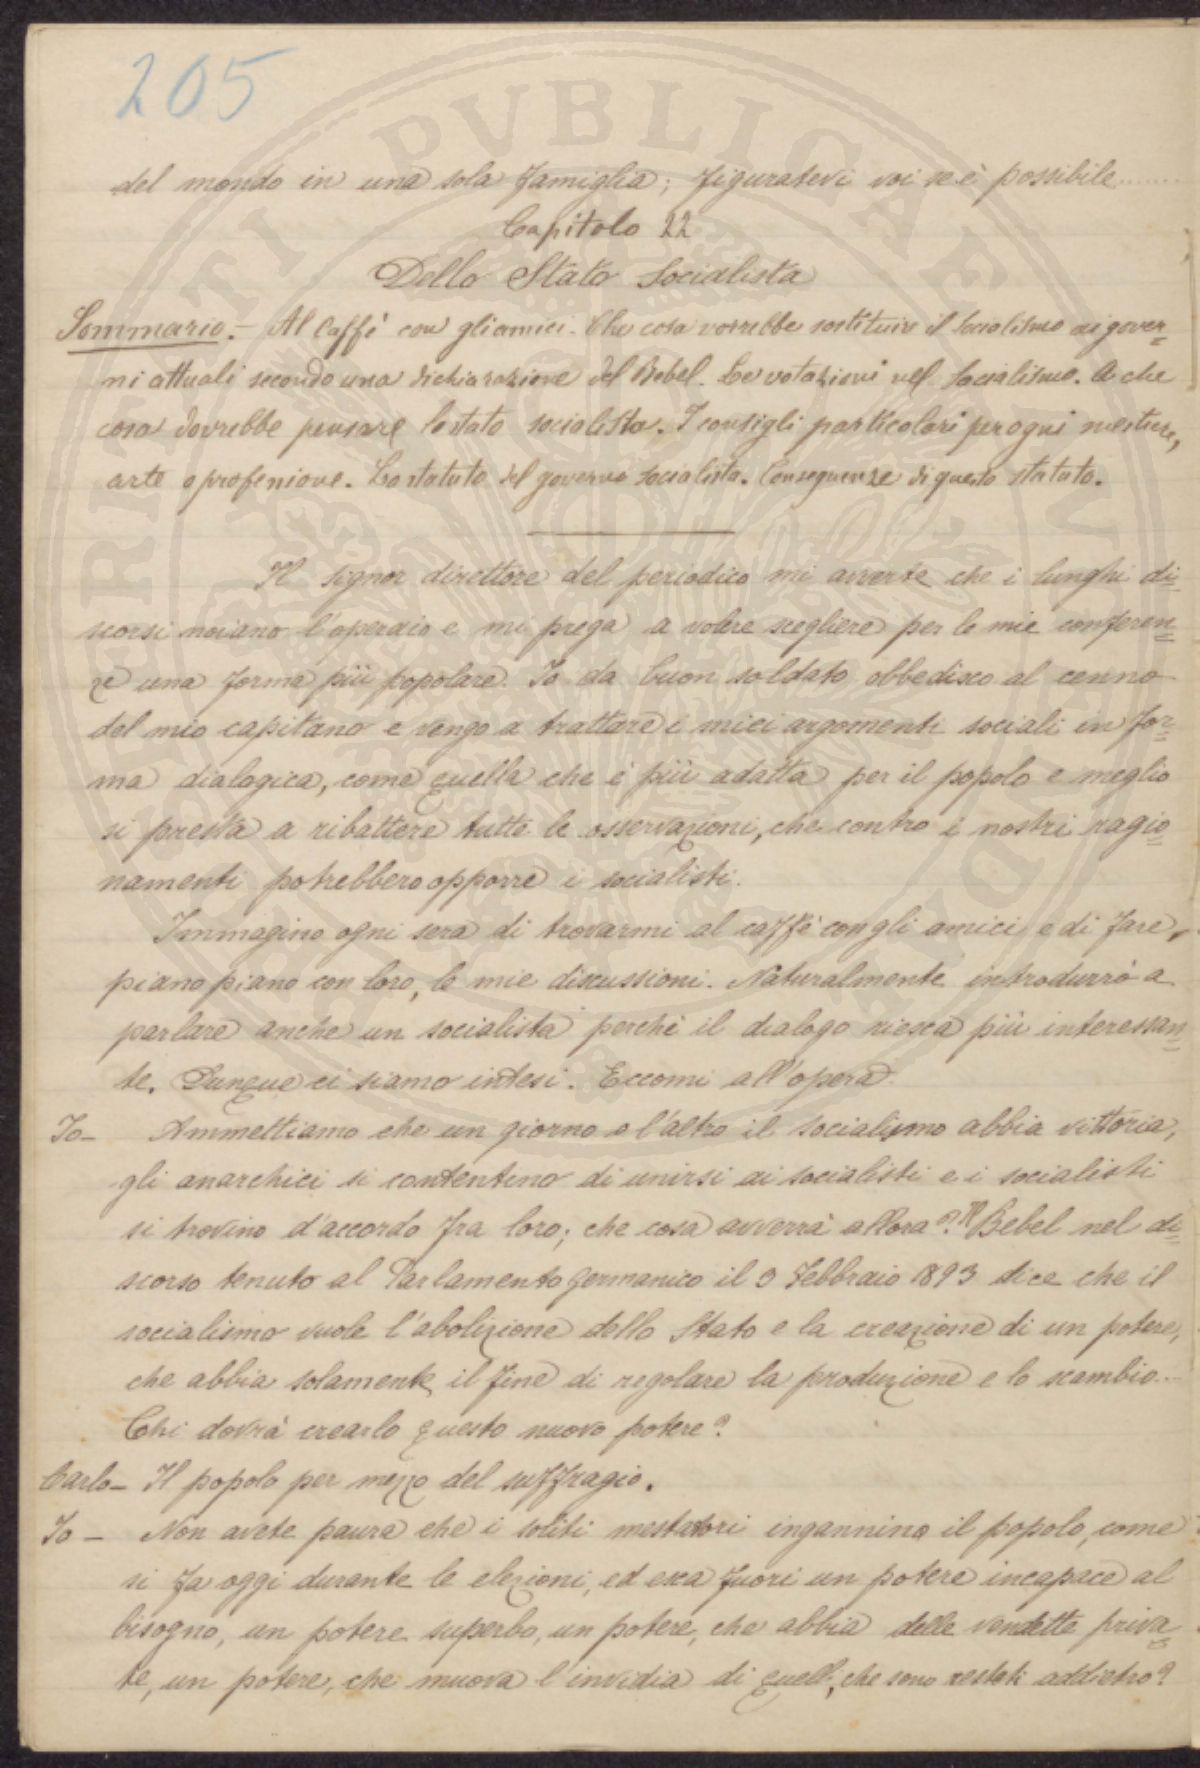 205
del mondo in una sola famiglia; figuratevi voi se è possibile.......
Capitolo 22
Dello Stato Socialista
Sommario. – Al Caffè con gli amici. Che cosa vorrebbe sostituire il Socialismo ai gover=
ni attuali secondo una dichiarazione del Bebel. Le votazioni nel Socialismo. A che
cosa dovrebbe pensare lo stato socialista. I consigli particolari per ogni mestiere,
arte o professione. Lo statuto del governo socialista. Conseguenze di questo statuto.
Il signor direttore del periodico mi avverte che i lunghi di=
scorsi noiano l'operaio e mi prega a volere scegliere per le mie conferen=
ze una forma più popolare. Io da buon soldato obbedisco al cenno
del mio capitano e vengo a trattare i miei argomenti sociali in for=
ma dialogica, come quella che è più adatta per il popolo e meglio
si presta a ribattere tutte le osservazioni, che contro i nostri ragio=
namenti potrebbero opporre i socialisti.
Immagino ogni sera di trovarmi al caffè con gli amici e di fare,
piano piano con loro, le mie discussioni. Naturalmente introdurrò a
parlare anche un socialista perchè il dialogo riesca più interessan=
te. Dunque ci siamo intesi. Eccomi all'opera.
Io – Ammettiamo che un giorno o l'altro il socialismo abbia vittoria,
gli anarchici si contentino di unirsi ai socialisti e i socialisti
si trovino d'accordo fra loro; che cosa avverrà allora? Il Bebel nel di=
scorso tenuto al Parlamento germanico il 3 Febbraio 1893 dice che il
socialismo vuole l'abolizione dello Stato e la creazione di un potere,
che abbia solamente il fine di regolare la produzione e lo scambio...
Chi dovrà crearlo questo nuovo potere?
Carlo – Il popolo per mezzo del suffragio.
Io – Non avete paura che i soliti mestatori ingannino il popolo, come
si fa oggi durante le elezioni, ed esca fuori un potere incapace al
bisogno, un potere superbo, un potere, che abbia delle vendette priva=
te, un potere, che muova l'invidia di quelli, che sono restati addietro?
PVBLICAE